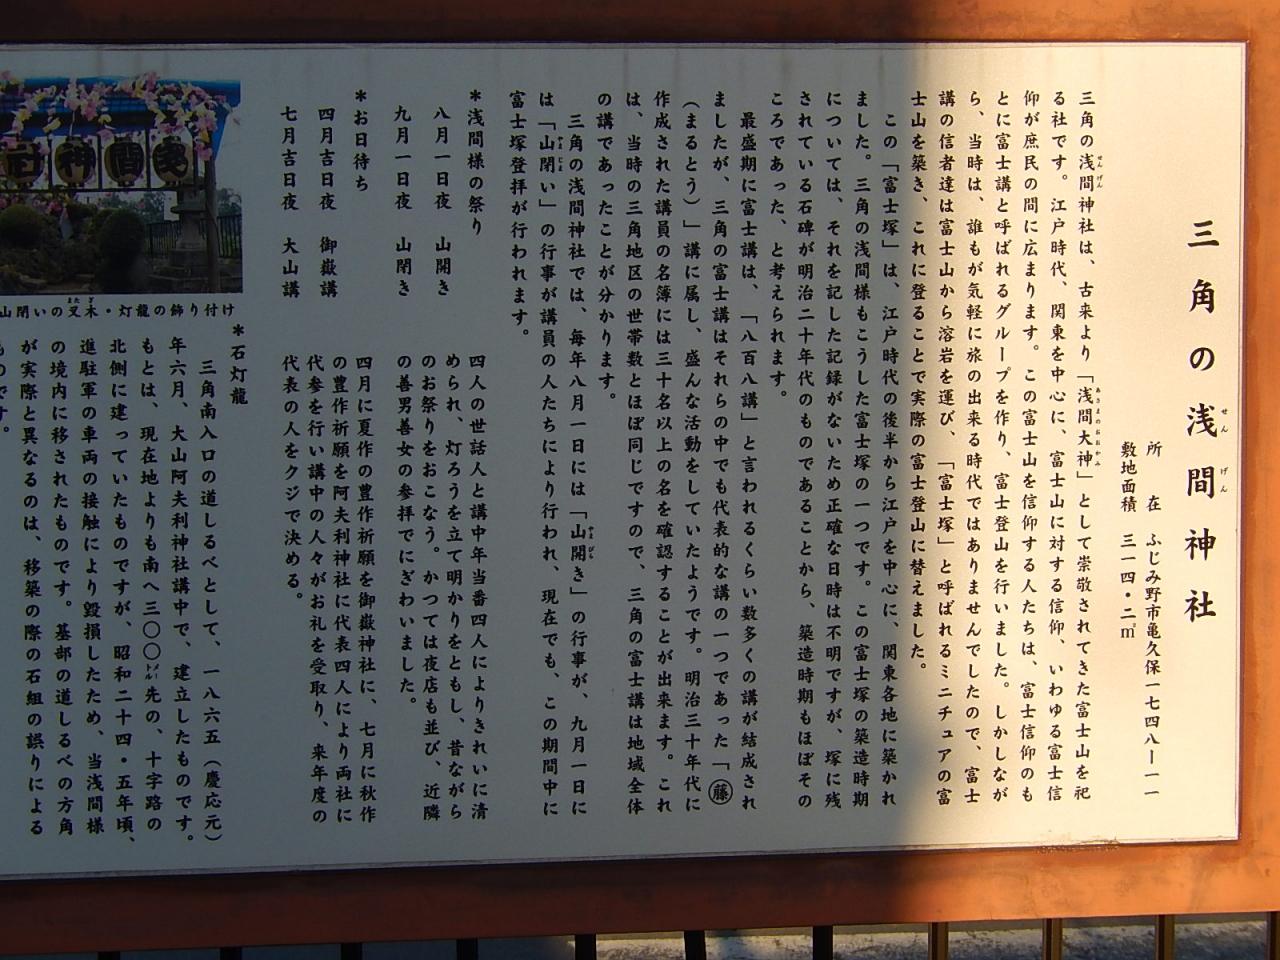 三角の浅間神社
所在 ふじみ野市亀久保一七四八ー一一
敷地面積 三一四・二㎡
三角の浅間神社は、古来より「浅間大神」として崇敬されてきた富士山を祀
る社です。江戸時代、関東を中心に、富士山に対する信仰、いわゆる富士信
仰が庶民の間に広まります。この富士山を信仰する人たちは、富士信仰のも
とに富士講と呼ばれるグループを作り、富士登山を行いました。しかしなが
ら、当時は、誰もが気軽に旅の出来る時代ではありませんでしたので、富士
講の信者達は富士山から溶岩を運び、「富士塚」と呼ばれるミニチュアの富
士山を築き、これに登ることで実際の富士登山に替えました。
この「富士塚」は、江戸時代の後半から江戸を中心に、関東各地に築かれ
ました。三角の浅間様もこうした富士塚の一つです。この富士塚の築造時期
については、それを記した記録がないため正確な日時は不明ですが、塚に残
されている石碑が明治二十年代のものであることから、築造時期もほぼその
ころであった、と考えられます。
最盛期に富士講は、「八百八講」と言われるくらい数多くの講が結成され
ましたが、三角の富士講はそれらの中でも代表的な講の一つであった「㊞藤
（まるとう）」講に属し、盛んな活動をしていたようです。明治三十年代に
作成された講員の名簿には三十名以上の名を確認することが出来ます。これ
は、当時の三角地区の世帯数とほぼ同じですので、三角の富士講は地域全体
の講であったことが分かります。
三角の浅間神社では、毎年八月一日には「山開き」の行事が、九月一日に
は「山閉い」の行事が講員の人たちにより行われ、現在でも、この期間中に
富士塚登拝が行われます。
＊浅間様の祭り
八月一日夜 山開き
九月一日夜 山閉き
四人の世話人と講中年当番四人によりきれいに清
められ、灯ろうを立て明かりをともし、昔ながら
のお祭りをおこなう。かつては夜店も並び、近隣
の善男善女の参拝でにぎわいました。
＊お日待ち
四月吉日夜 御嶽講
七月吉日夜 大山講
四月に夏作の豊作祈願を御嶽神社に、七月に秋作
の豊作祈願を阿夫利神社に代表四人により両社に
代参を行い講中の人々がお礼を受取り、来年度の
代表の人をクジで決める。
山閉いの叉木・灯籠の飾り付け
＊石灯籠
三角南入口の道しるべとして、一八六五（慶応元）
年六月、大山阿夫利神社講中で、建立したものです。
もとは、現在地よりも南へ三〇〇㍍先の、十字路の
北側に建っていたものですが、昭和二十四・五年頃、
進駐軍の車両の接触により毀損したため、当浅間様
の境内に移されたものです。基部の道しるべの方角
が実際と異なるのは、移築の際の石組の誤りによる
ものです。